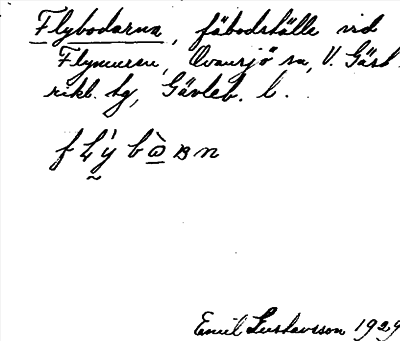 Flybodarna, fäbodställe vid
Flymuren, Ovansjö sn, V. Gästr
rikl. tg, Gävleb. l.
Emil Gustavsson 1929